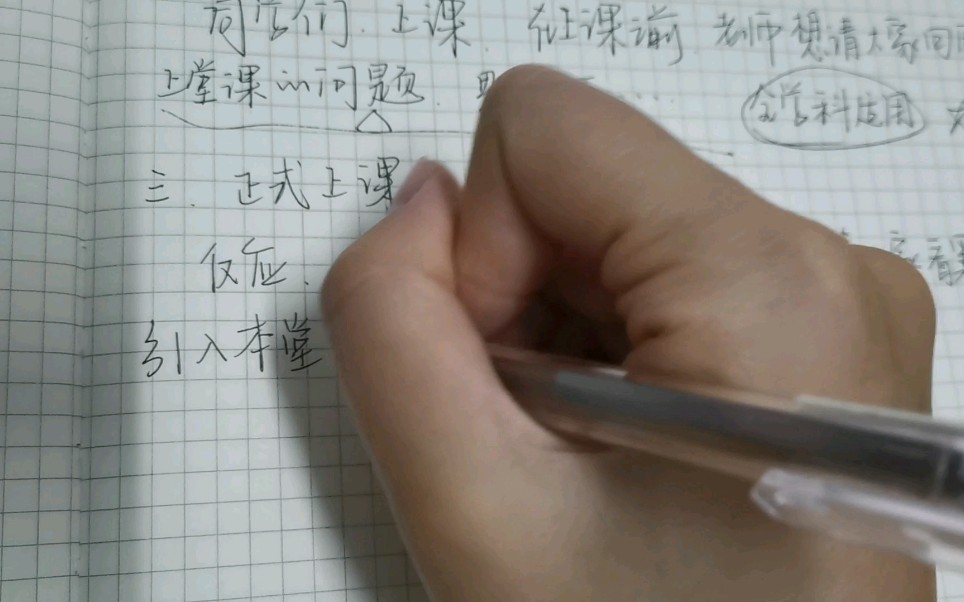 同学们.上课.在上课前 老师想请大家回
上堂课的问题.
全学科适用
三.正式上课
仅应.
家看
引入本堂